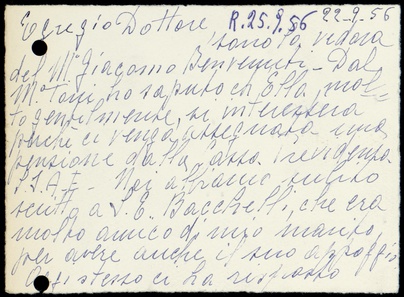 Egregio Dottore R. 25.9.56 22-9-56
sono la vedova
del Mº Giacomo Benvenuti - Dal
Mº Toni ho saputo ch'Ella, mol-
to gentilmente, si interessera
perchè ci venga assegnata una
pensione dalla Cassa Previdenza
S.I.A.E - Noi abbiamo subito
scritto a S. E. Bacchelli, che era
molto amico di mio marito,
per avere anche il suo appoggio
Oggi stesso ci ha risposto